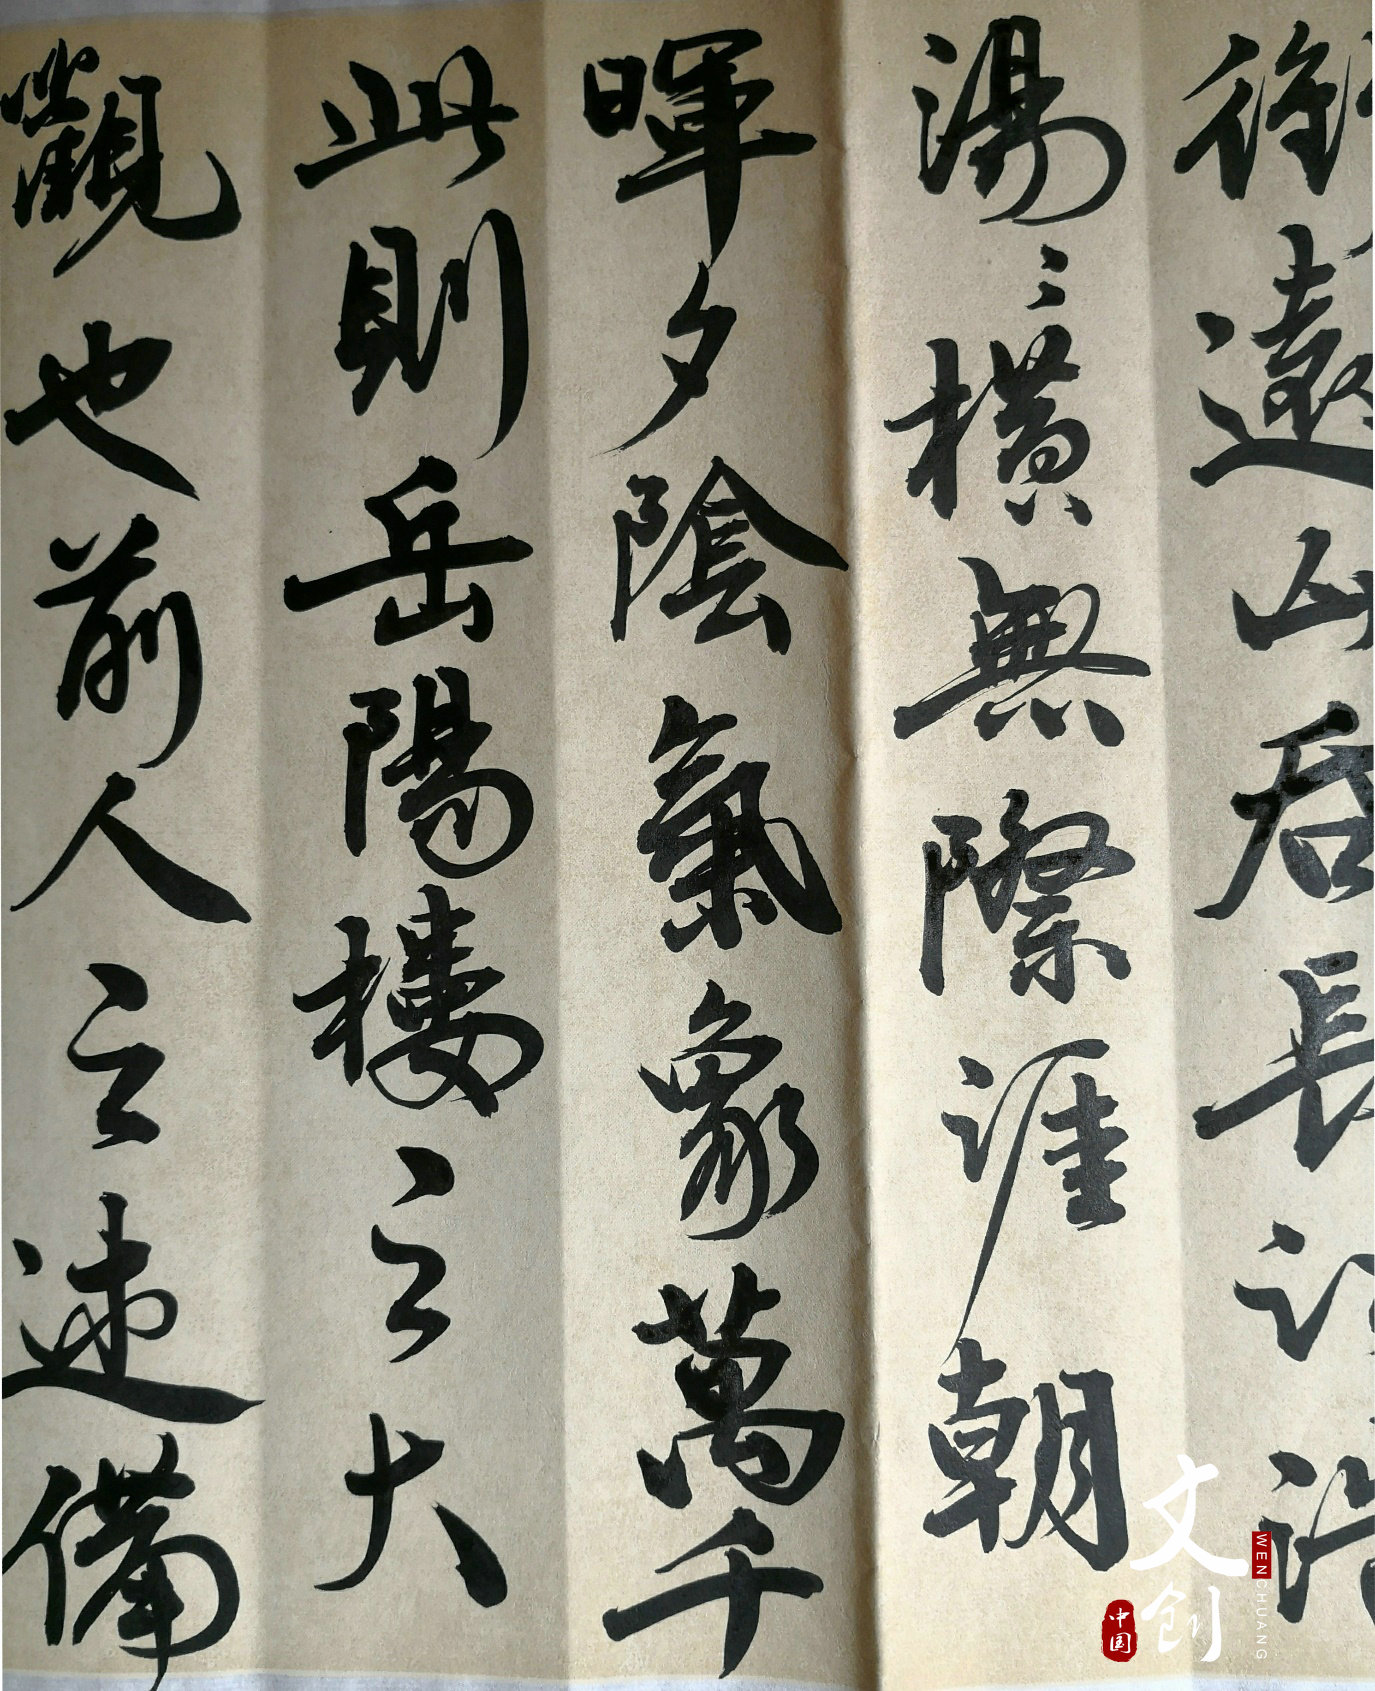 銜遠山吞長江浩
湯〻横無際涯朝
暉夕陰氣象萬千
此則岳陽樓之大
觀也前人之述備
文创
WENCHUANG
中国